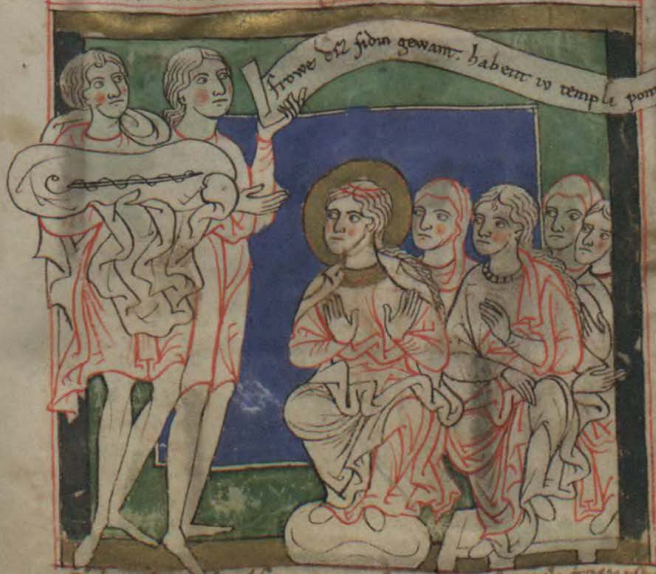 frowe diz sidin gewant. habent iv templi